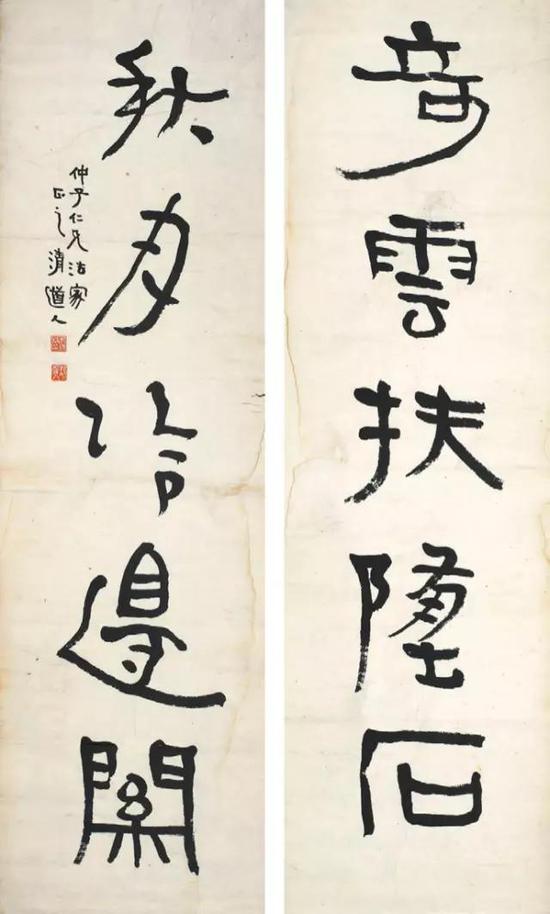 奇雲扶墮石
秋月冷邊關
仲子仁兄法家
正之 清道人